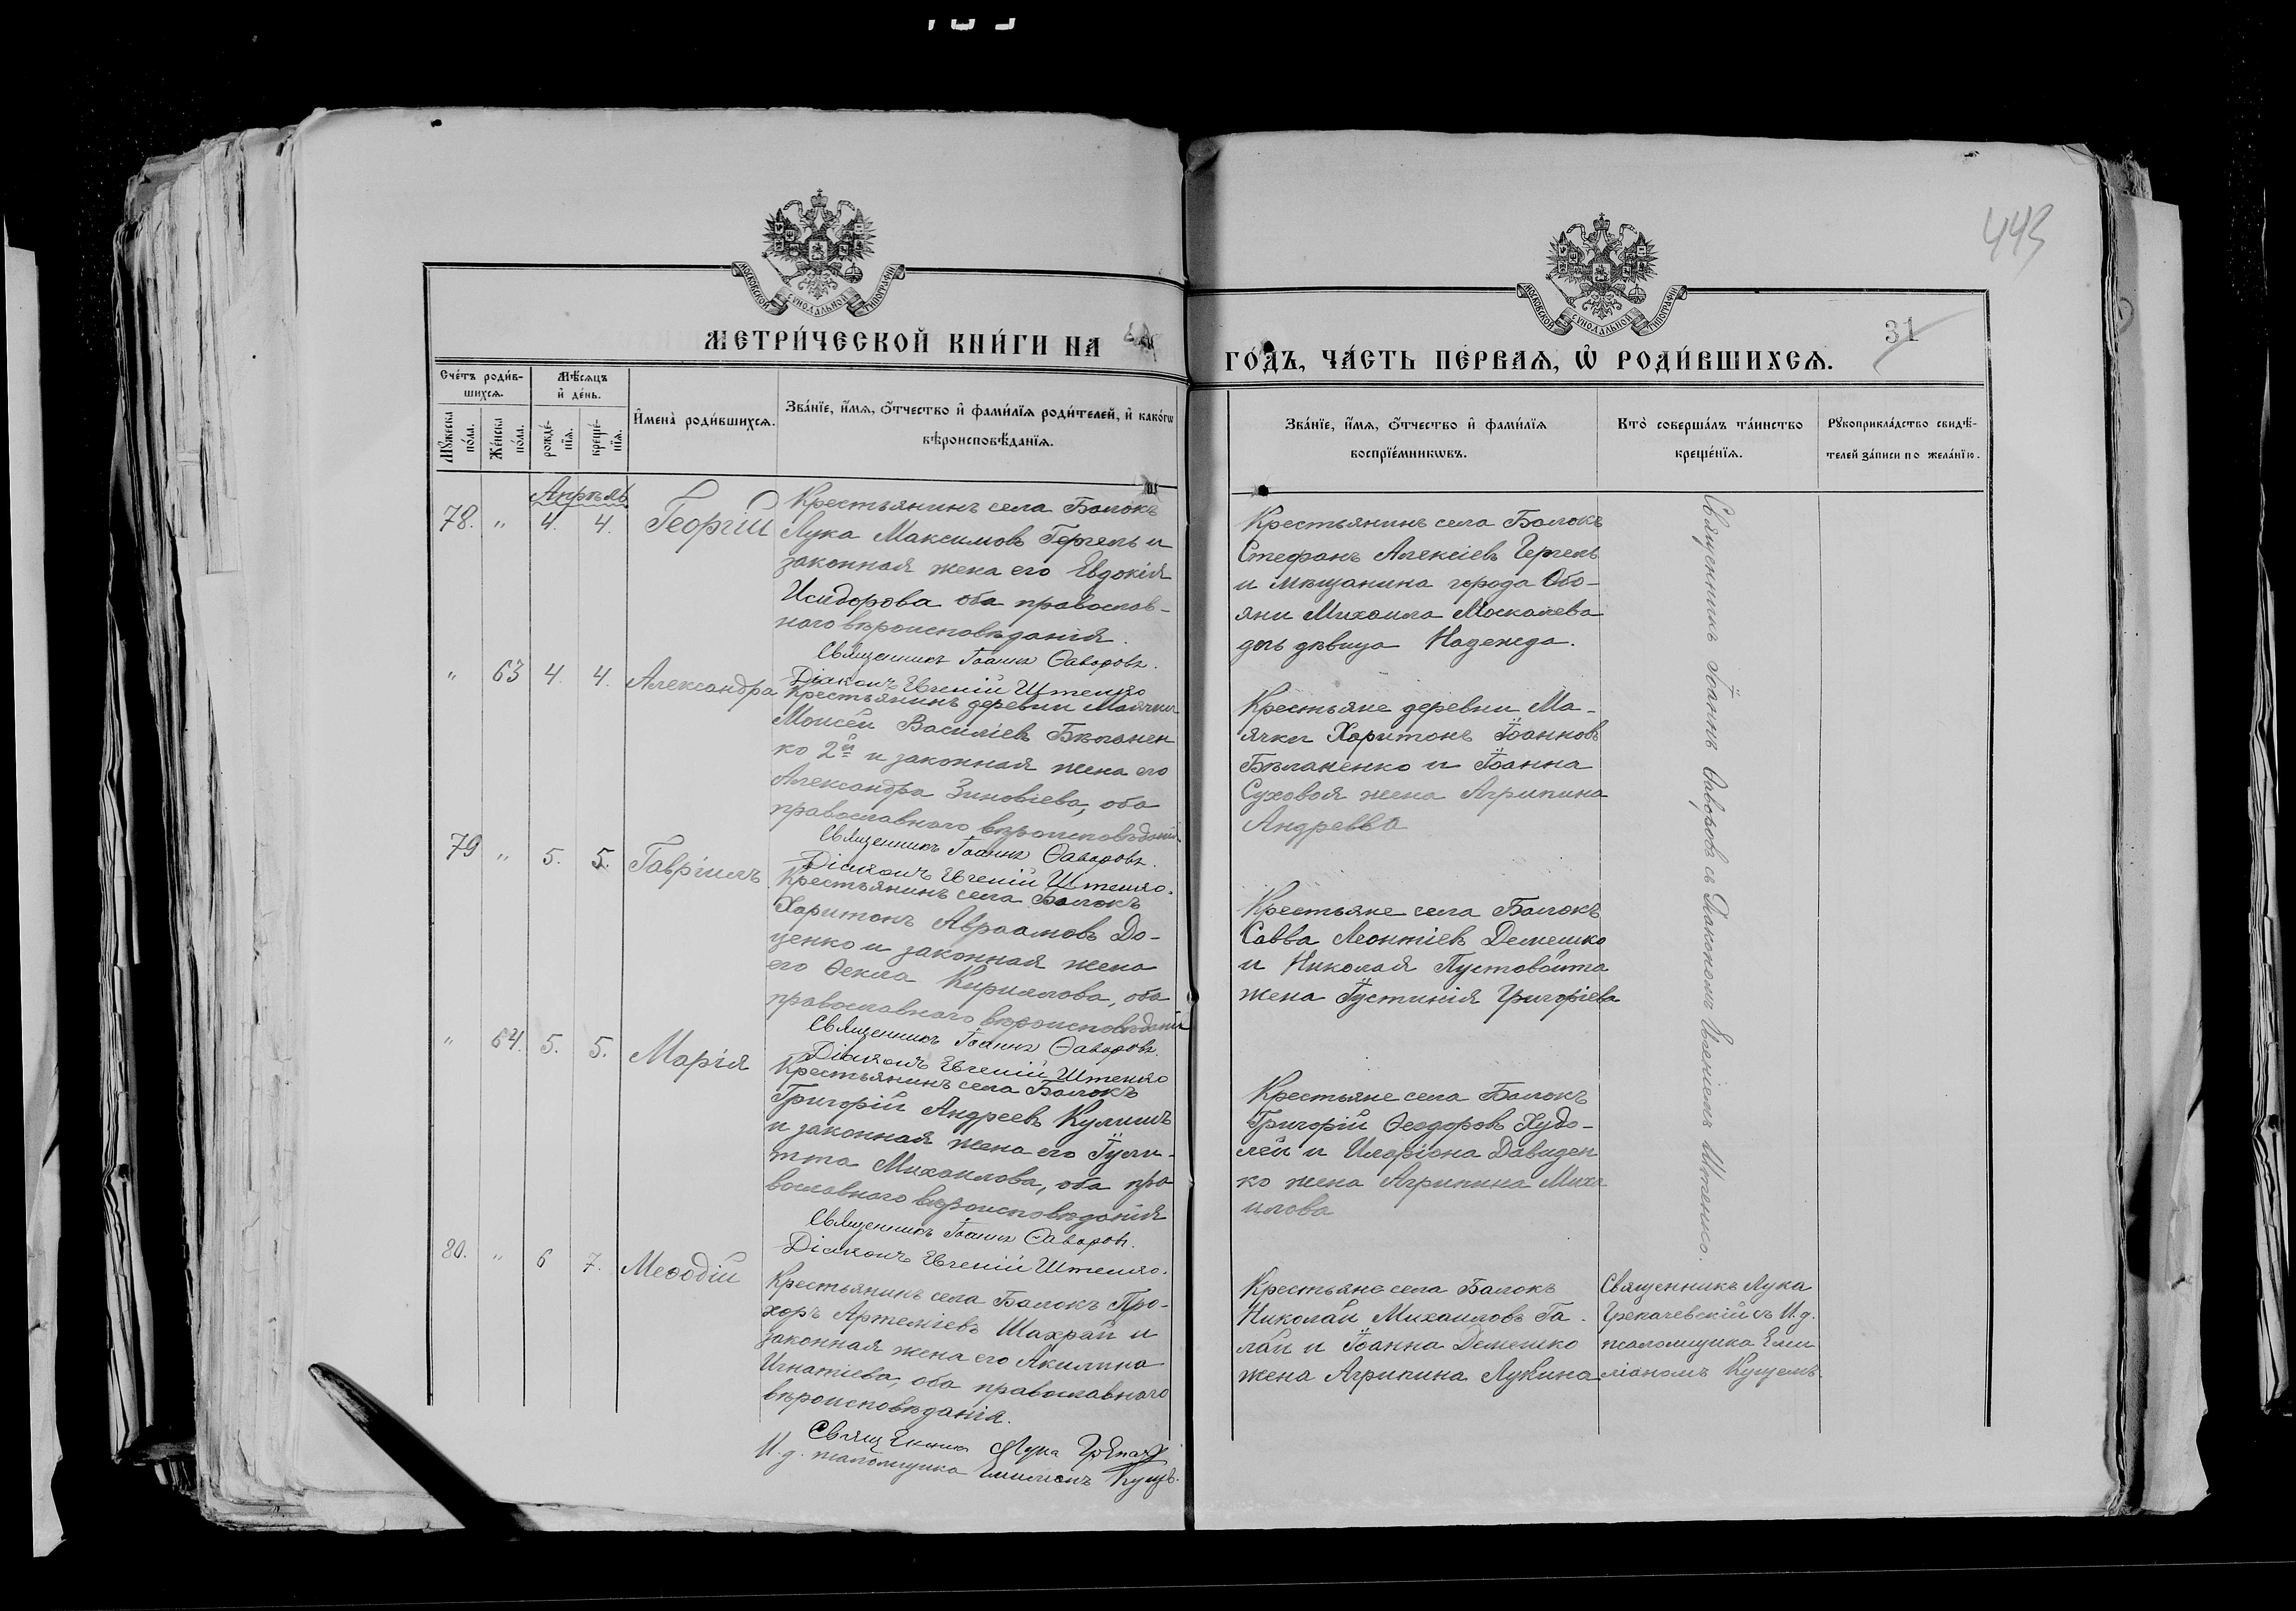 443
МОСКОВСКОЙ СѴНОДАЛЬНОЙ ТИПОГРАФІИ
МОСКОВСКОЙ СѴНОДАЛЬНОЙ ТИПОГРАФІИ
31
МЕТРИ́ЧЕСКОЙ КНИ́ГИ НА
ГО́ДЪ, ЧА́СТЬ ПЕ́РВАѦ, Ѡ҆ РОДИ́ВШИХСѦ.
Сче́тъ роди́в-
шихсѧ.
Мѣ́сѧцъ
и҆ де́нь.
Мꙋ́жеска по́ла.
Же́нска по́ла.
рожде́-
нїѧ.
креще́-
нїѧ.
И҆мена̀ роди́вшихсѧ.
Зва́нїе, и҆́мѧ, ѻ҆́тчество и҆ фами́лїѧ роди́телей, и҆ како́гѡ
вѣроисповѣ́данїѧ.
Зва́нїе, и҆́мѧ, ѻ҆́тчество и҆ фами́лїѧ
воспрїе́мникѡвъ.
Кто̀ соверша́лъ та́инство
креще́нїѧ.
Рꙋкоприкла́дство свидѣ́-
телей за́писи по жела́нїю.
Апрѣль
78. " 4. 4. Георгій
Крестьянинъ села Балокъ
Лука Максимовъ Гергель и
законная жена его Евдокія
Исидорова оба православ-
наго вѣроисповѣданія.
Священникъ Іоаннъ Ѳаворовъ.
Діаконъ Евгеній Штепко
Крестьянинъ села Балокъ
Стефанъ Алексіевъ Гергель
и мѣщанина города Обо-
яни Михаила Москалева
дочь дѣвица Надежда.
Священникъ Іоаннъ Ѳаворовъ съ Діакономъ Евгеніемъ Штепко.
" 63 4. 4. Александра
Крестьянинъ деревни Маячки
Моисей Василіевъ Бѣланен
ко 2й и законная жена его
Александра Зиновіева, оба
православнаго вѣроисповѣданія
Священникъ Іоаннъ Ѳаворовъ.
Діаконъ Евгеній Штепко.
Крестьяне деревни Ма-
ячки Харитонъ Іоанновъ
Бѣланенко и Іоанна
Суховоя жена Агрипина
Андреева
79 " 5. 5. Гавріилъ
Крестьянинъ села Балокъ
Харитонъ Авраамовъ До-
ценко и законная жена
его Ѳекла Кирилова, оба
православнаго вѣроисповѣданія
Священникъ Іоаннъ Ѳаворовъ.
Діаконъ Евгеній Штепко
Крестьяне села Балокъ
Савва Леонтіевъ Демешко
и Николая Пустовойта
жена Іустинія Григоріева
" 64. 5. 5. Марія
Крестьянинъ села Балокъ
Григорій Андреевъ Кулишъ
и законная жена его Іули-
тта Михаилова, оба пра
вославнаго вѣроисповѣданія
Священникъ Іоаннъ Ѳаворовъ.
Діаконъ Евгеній Штепко.
Крестьяне села Балокъ
Григорій Ѳеодоровъ Худо-
лей и Иларіона Давиден
ко жена Агрипина Миха
илова
80. " 6 7. Меѳодій
Крестьянинъ села Балокъ Про-
хоръ Артеміевъ Шахрай и
законная жена его Акилина
Игнатіева, оба православнаго
вѣроисповѣданія.
Священникъ Лука
И. д. псаломщика Емиліанъ
Крестьяне села Балокъ
Николай Михаиловъ Га-
лай и Іоанна Демешко
жена Агрипина Лукина
Священникъ Лука
съ И. д.
псаломщика Еми
ліаномъ